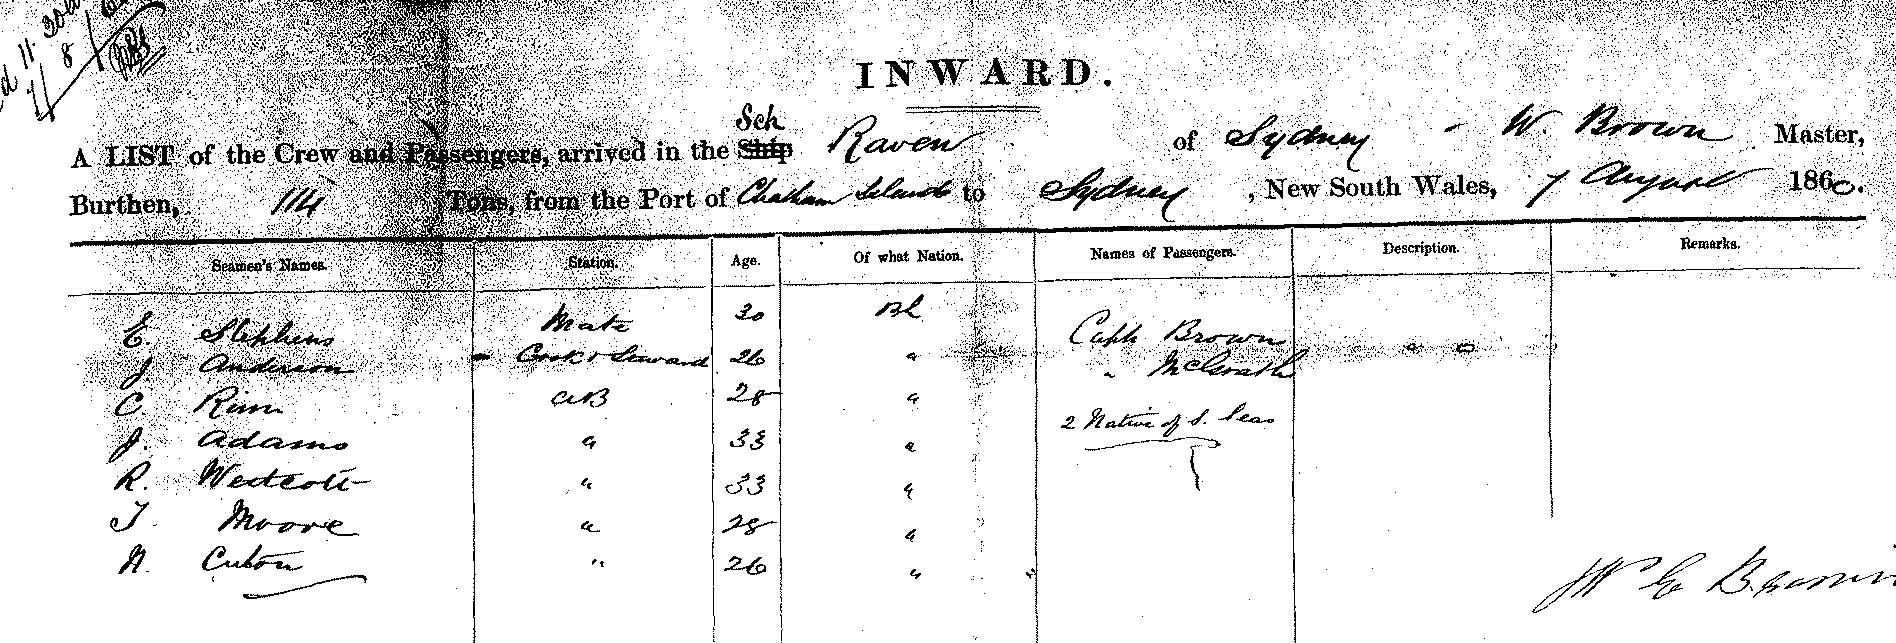 11. 30
7/8/
INWARD.
Sch
A LIST of the Crew and Passengers, arrived in the Ship Raven of Sydney - W. Brown Master,
Burthen, 114 Tons, from the Port of Chatham Islands to Sydney, New South Wales, 7 August 1860.
Seamen's Names. Station. Age. Of what Nation. Names of Passengers. Description. Remarks.
E. Stephens Mate 30 Bh Capt Brown
J. Anderson Cook & Steward 26 " " McGrath " "
C. AB 28 "
2 Native of S. Seas
J. Adams " 33 "
R. Westcott " 33 "
T. Moore " 28 "
N. " 26 " "
Brown